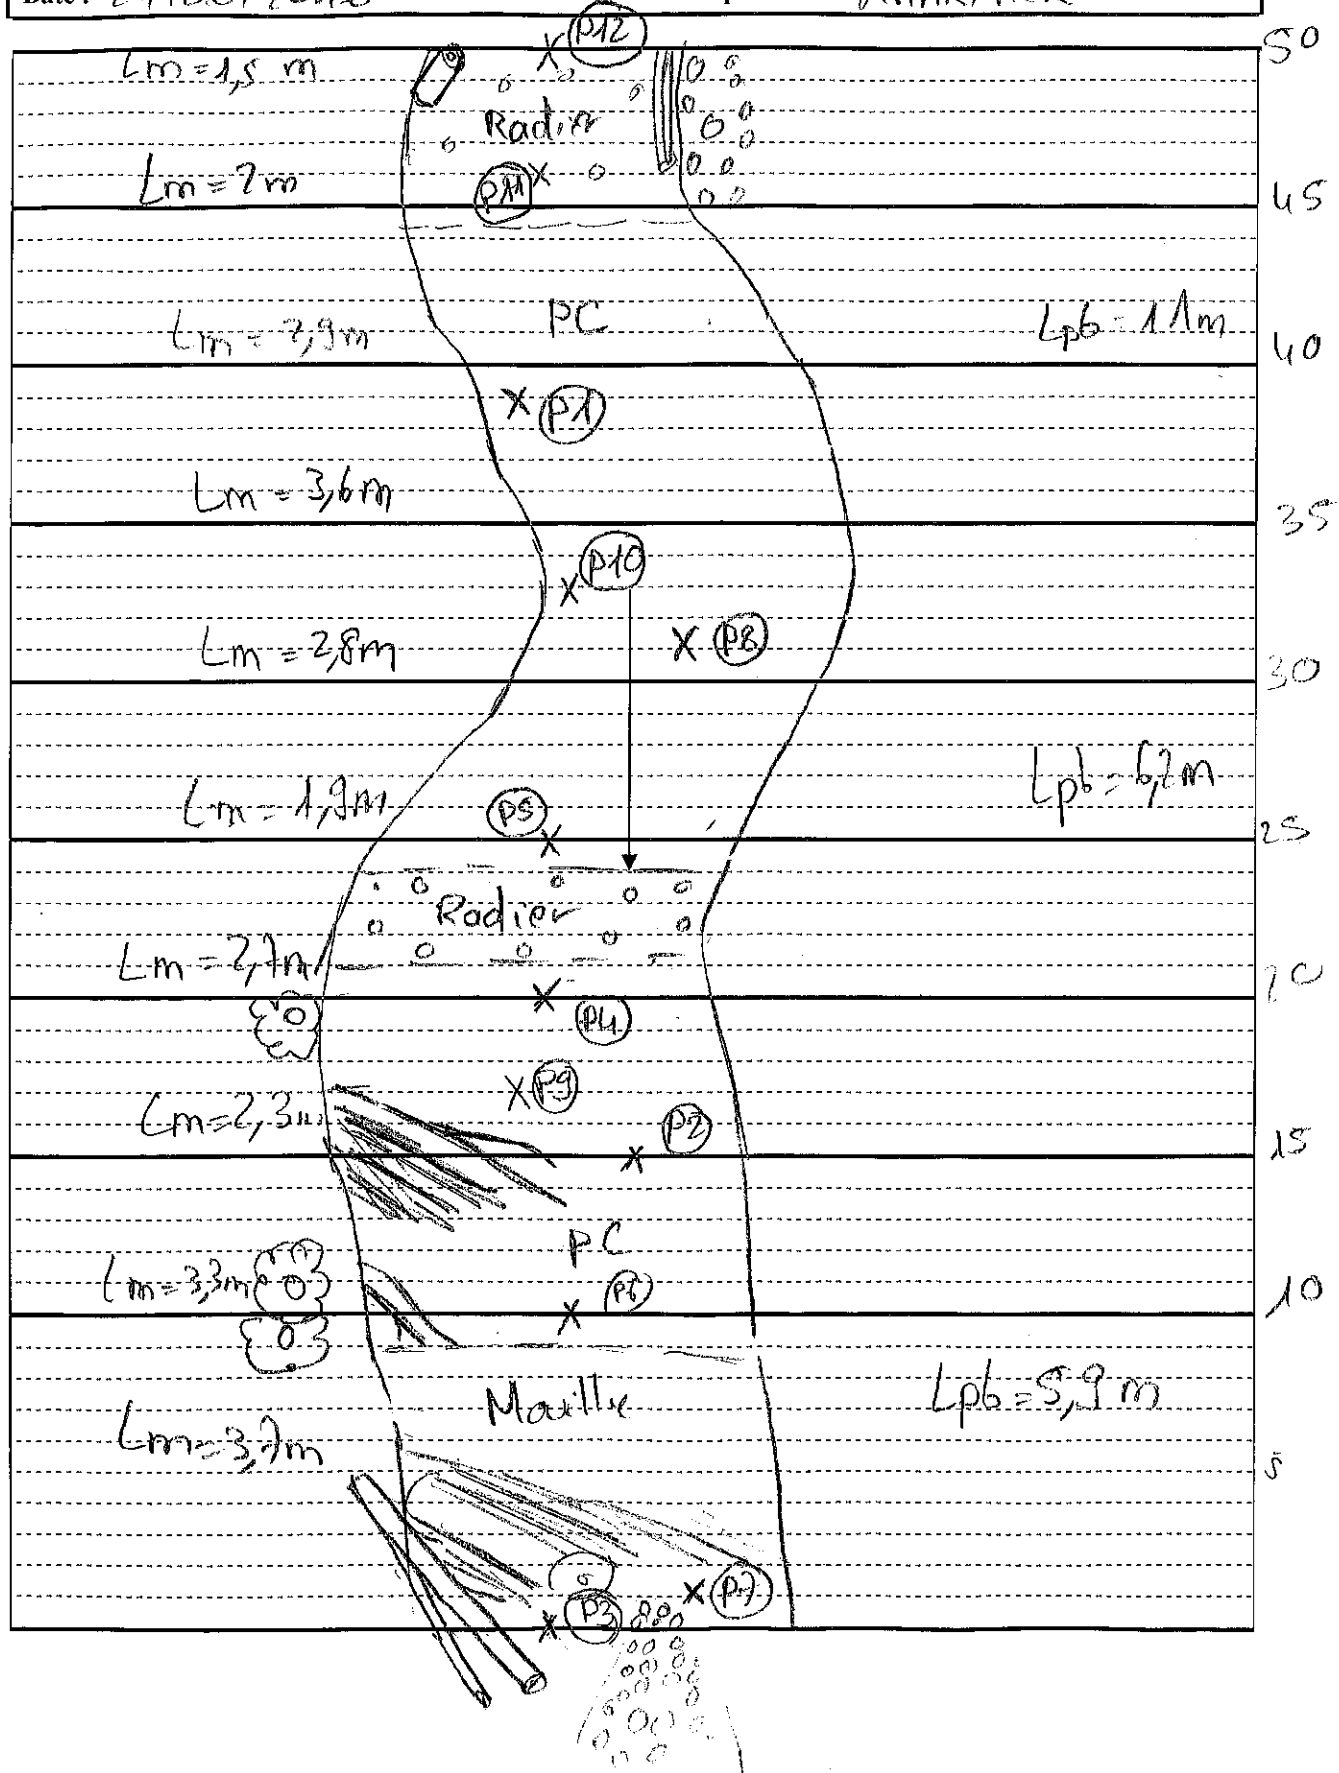 P12
50
Lm=1,5 m
Radier
Lm=2m
P11
45
PC
Lm=2,9m
Lpb=11m
40
P1
Lm=3,6m
35
P10
P8
Lm=2,8m
30
Lpb=6,2m
Lm=1,9m
P5
25
Radier
Lm=2,7m
20
P4
P9
Lm=2,3m
P2
15
PC
Lm=3,3m
P6
10
Mouille
Lpb=5,9m
Lm=3,7m
5
P7
P3